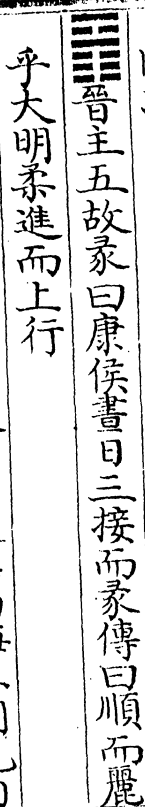 ䷢晉主五故彖曰康侯晝日三接而彖傳曰順而麗
乎大明柔進而上行